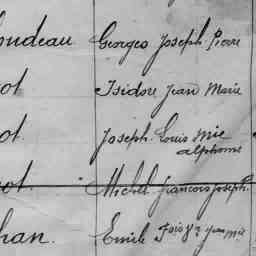 oudeau Georges Joseph Pierre
ot Isidore Jean Marie
ot. Joseph Louis Mie
alphonse
ot. Michel francois joseph
han. Emile fois Jn Mie